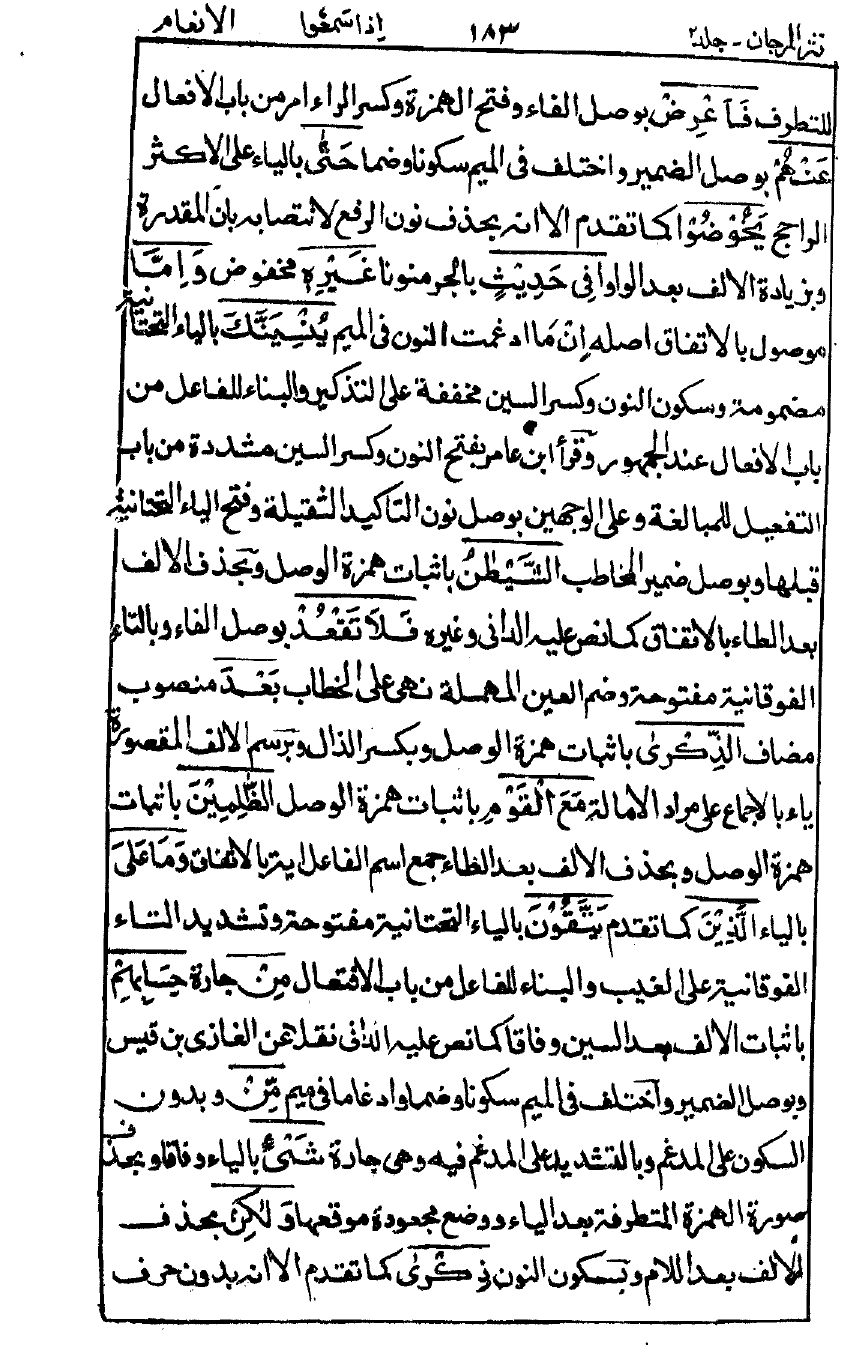 نثر المرجان - جلد٢ ١٨٣ اذا سمعوا الانعام
للتطرف فَاَعْرِضْ بوصل الفاء وفتح الهمزة وكسر الراء امر من باب الافعال
عَنْهُمْ بوصل الضمير واختلف فى الميم سكونا وضما حَتّٰى بالياء على الاكثر
الراجح يَخُوْضُوْا كما تقدم الا انه بحذف نون الرفع لانتصابه بان المقدرة
وبزيادة الالف بعد الواو فِى حَدِيْثٍ بالجر منونا غَيْرِهٖ مخفوض وَاِمَّا
موصول بالاتفاق اصله اِنْ مَا ادغمت النون فى الميم يُنْسِيَنَّكَ بالياء التحتانية
مضمومة وسكون النون وكسر السين مخففة على التذكير والبناء للفاعل من
باب الافعال عند الجمهور وقرأ ابن عامر بفتح النون وكسر السين مشددة من باب
التفعيل للمبالغة وعلى الوجهين بوصل نون التاكيد الثقيلة وفتح الياء التحتانية
قبلها وبوصل ضمير المخاطب الشَّيْطٰنُ باثبات همزة الوصل وبحذف الالف
بعد الطاء بالاتفاق كما نص عليه الدانى وغيره فَلَا تَقْعُدْ بوصل الفاء وبالتاء
الفوقانية مفتوحة وضم العين المهملة نهى على الخطاب بَعْدَ منصوب
مضاف الذِّكْرٰى باثبات همزة الوصل وبكسر الذال وبرسم الالف المقصورة
ياء بالاجماع على مراد الامالة مَعَ الْقَوْمِ باثبات همزة الوصل الظّٰلِمِيْنَ باثبات
همزة الوصل وبحذف الالف بعد الظاء جمع اسم الفاعل اية بالاتفاق وَمَا عَلَى
بالياء الَّذِيْنَ كما تقدم يَتَّقُوْنَ بالياء التحتانية مفتوحة وتشديد التاء
الفوقانية على الغيب والبناء للفاعل من باب الافتعال مِنْ جارة حِسَابِهِمْ
باثبات الالف بعد السين وفاقا كما نص عليه الدانى نقلا عن الغازى بن قيس
وبوصل الضمير واختلف فى الميم سكونا وضما وادغاما فى ميم مِّنْ وبدون
السكون على المدغم وبالتشديد على المدغم فيه وهى جارة شَىْءٍ بالياء وفاقا وبحذف
صورة الهمزة المتطرفة بعد الياء ووضع مجعودة موقعها وَلٰكِنْ بحذف
الالف بعد اللام وبسكون النون ذِكْرٰى كما تقدم الا انه بدون حرف